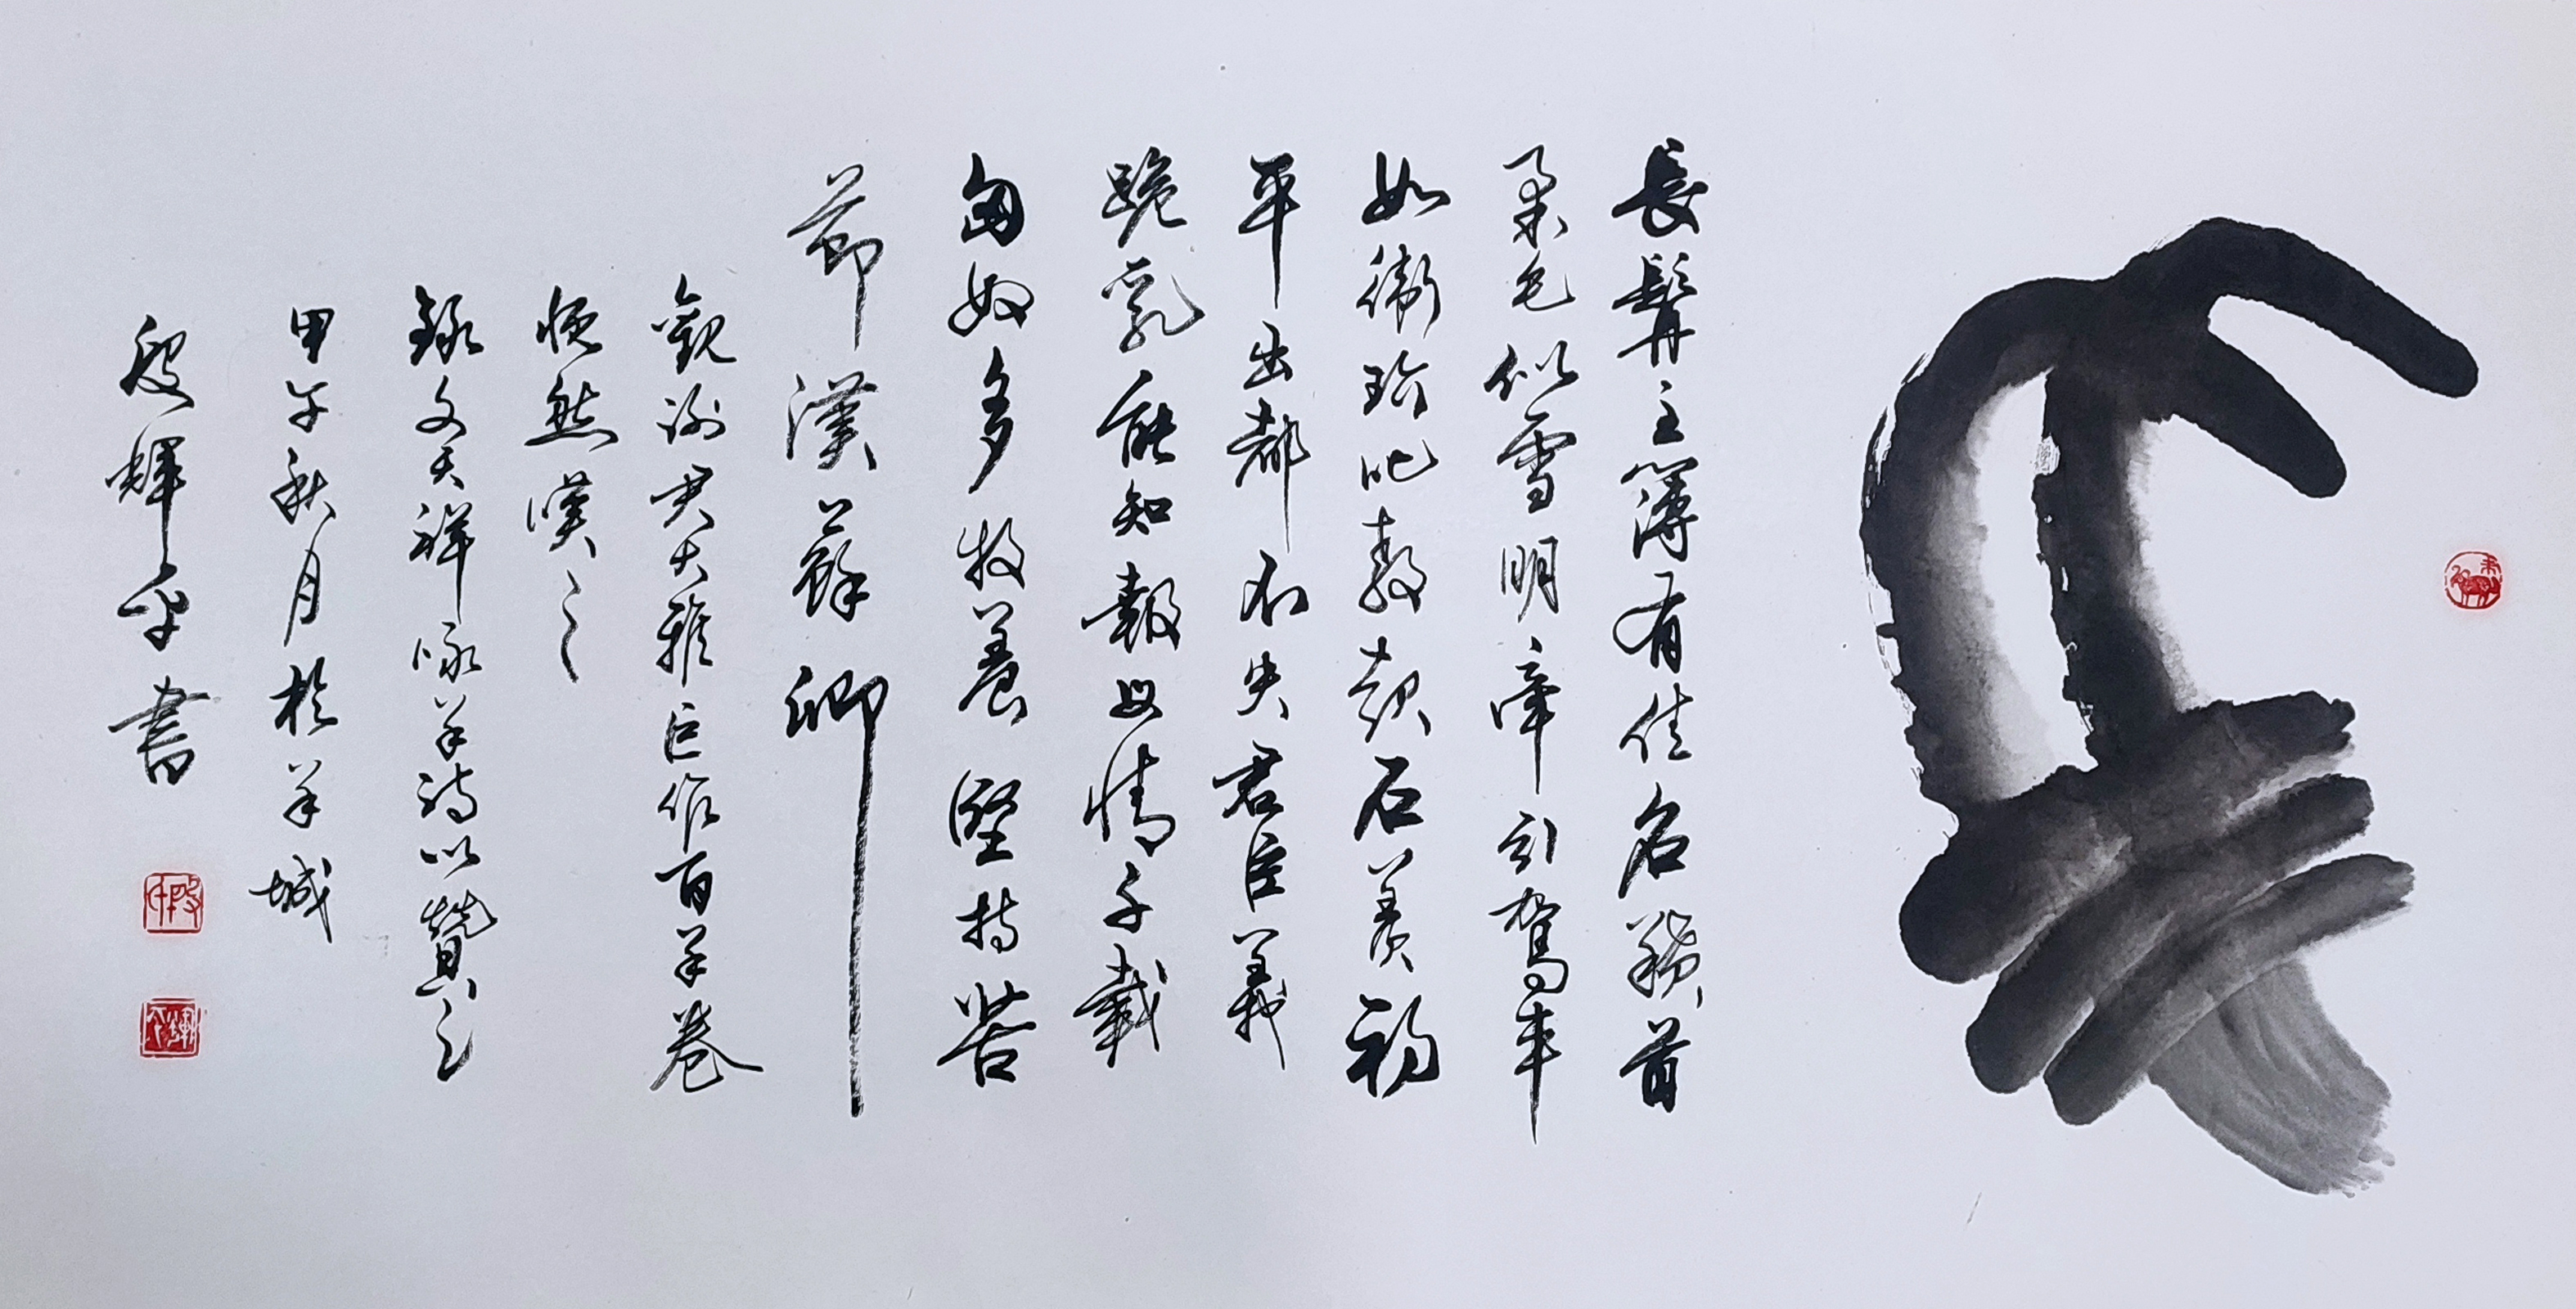 長髯主簿有佳名䫇首
柔毛似雪明牽引駕車
如衛玠叱教起石羨初
平出都不失君臣義
跪乳能知報母情千載
匈奴多牧養堅持苦
節漢蘇卿
觀謝尹大雅巨作百羊卷
慨然嘆之
錄文天祥咏羊詩以贊之
甲午秋月於羊城
段輝平書